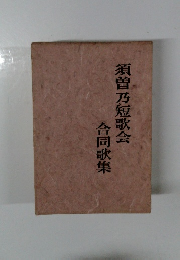 須曽乃短歌会
合同歌集